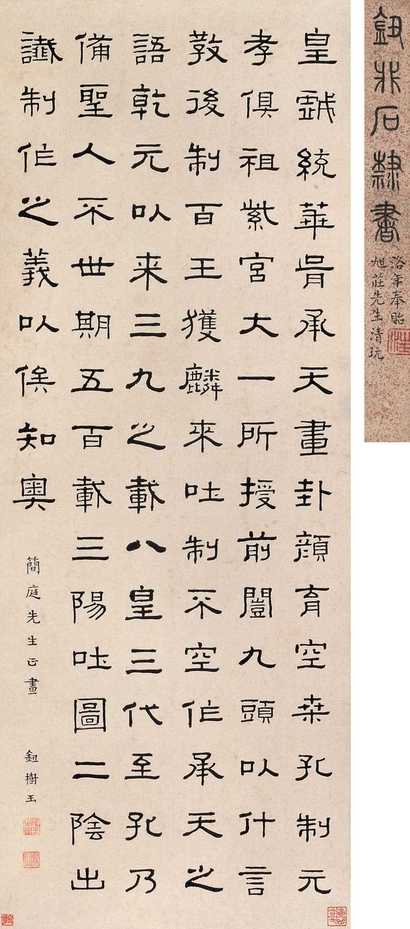 鈕非石隸書
洛年奉貽
旭莊先生清玩
皇戲統華胥承天畫卦顏育空桒孔制元
孝俱祖紫宮大一所授前闓九頭以什言
教後制百王獲麟來吐制不空作承天之
語乾元以来三九之載八皇三代至孔乃
備聖人不世期五百載三陽吐圖二陰出
讖制作之義以俟知奧
簡庭先生正畫 鈕樹玉